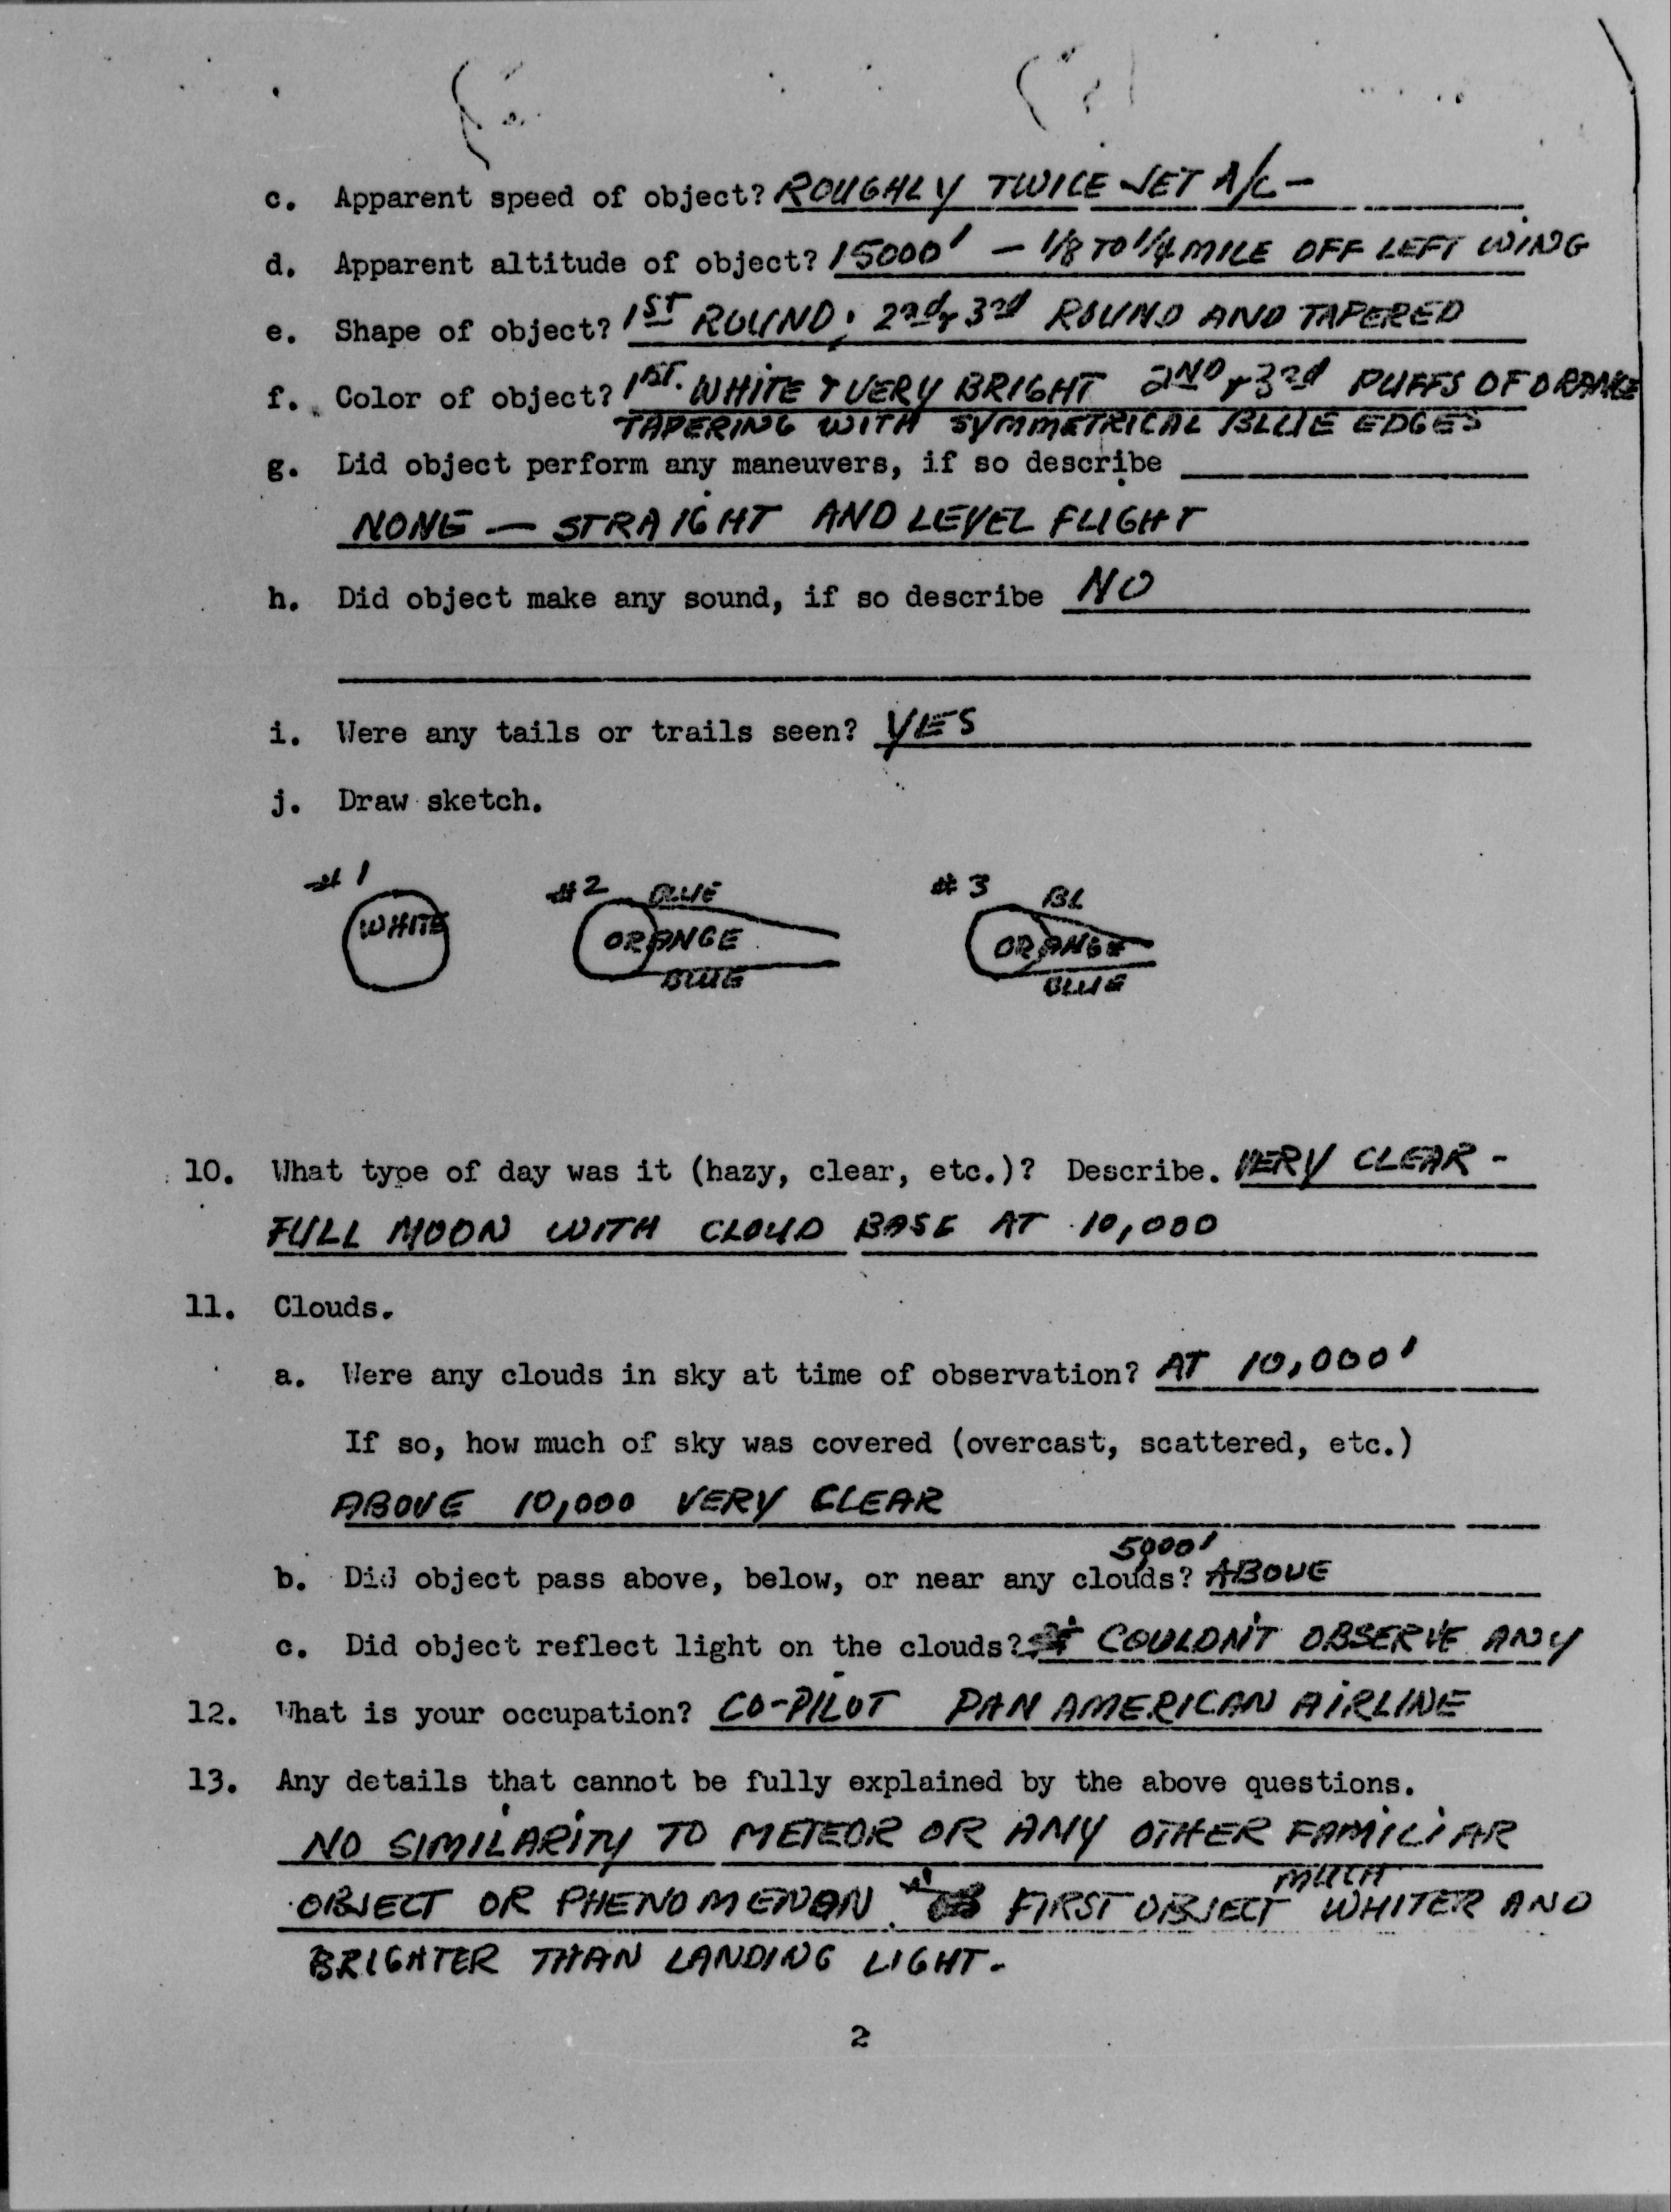 c. Apparent speed of object? ROUGHLY TWICE JET A/C -
d. Apparent altitude of object? 15000' - 1/8 TO 1/4 MILE OFF LEFT WING
e. Shape of object? 1ST ROUND; 2nd & 3rd ROUND AND TAPERED
f. Color of object? 1ST. WHITE & VERY BRIGHT 2ND & 3rd PUFFS OF ORANGE
TAPERING WITH SYMMETRICAL BLUE EDGES
g. Did object perform any maneuvers, if so describe
NONE - STRAIGHT AND LEVEL FLIGHT
h. Did object make any sound, if so describe NO
i. Were any tails or trails seen? YES
j. Draw sketch.
#1 #2 BLUE #3 BL
WHITE ORANGE ORANGE
BLUE BLUE
10. What type of day was it (hazy, clear, etc.)? Describe. VERY CLEAR -
FULL MOON WITH CLOUD BASE AT 10,000
11. Clouds.
a. Were any clouds in sky at time of observation? AT 10,000'
If so, how much of sky was covered (overcast, scattered, etc.)
ABOVE 10,000 VERY CLEAR
5000'
b. Did object pass above, below, or near any clouds? ABOVE
c. Did object reflect light on the clouds? COULDN'T OBSERVE ANY
12. What is your occupation? CO-PILOT PAN AMERICAN AIRLINE
13. Any details that cannot be fully explained by the above questions.
NO SIMILARITY TO METEOR OR ANY OTHER FAMILIAR
MUCH
OBJECT OR PHENOMENON. FIRST OBJECT WHITER AND
BRIGHTER THAN LANDING LIGHT.
2